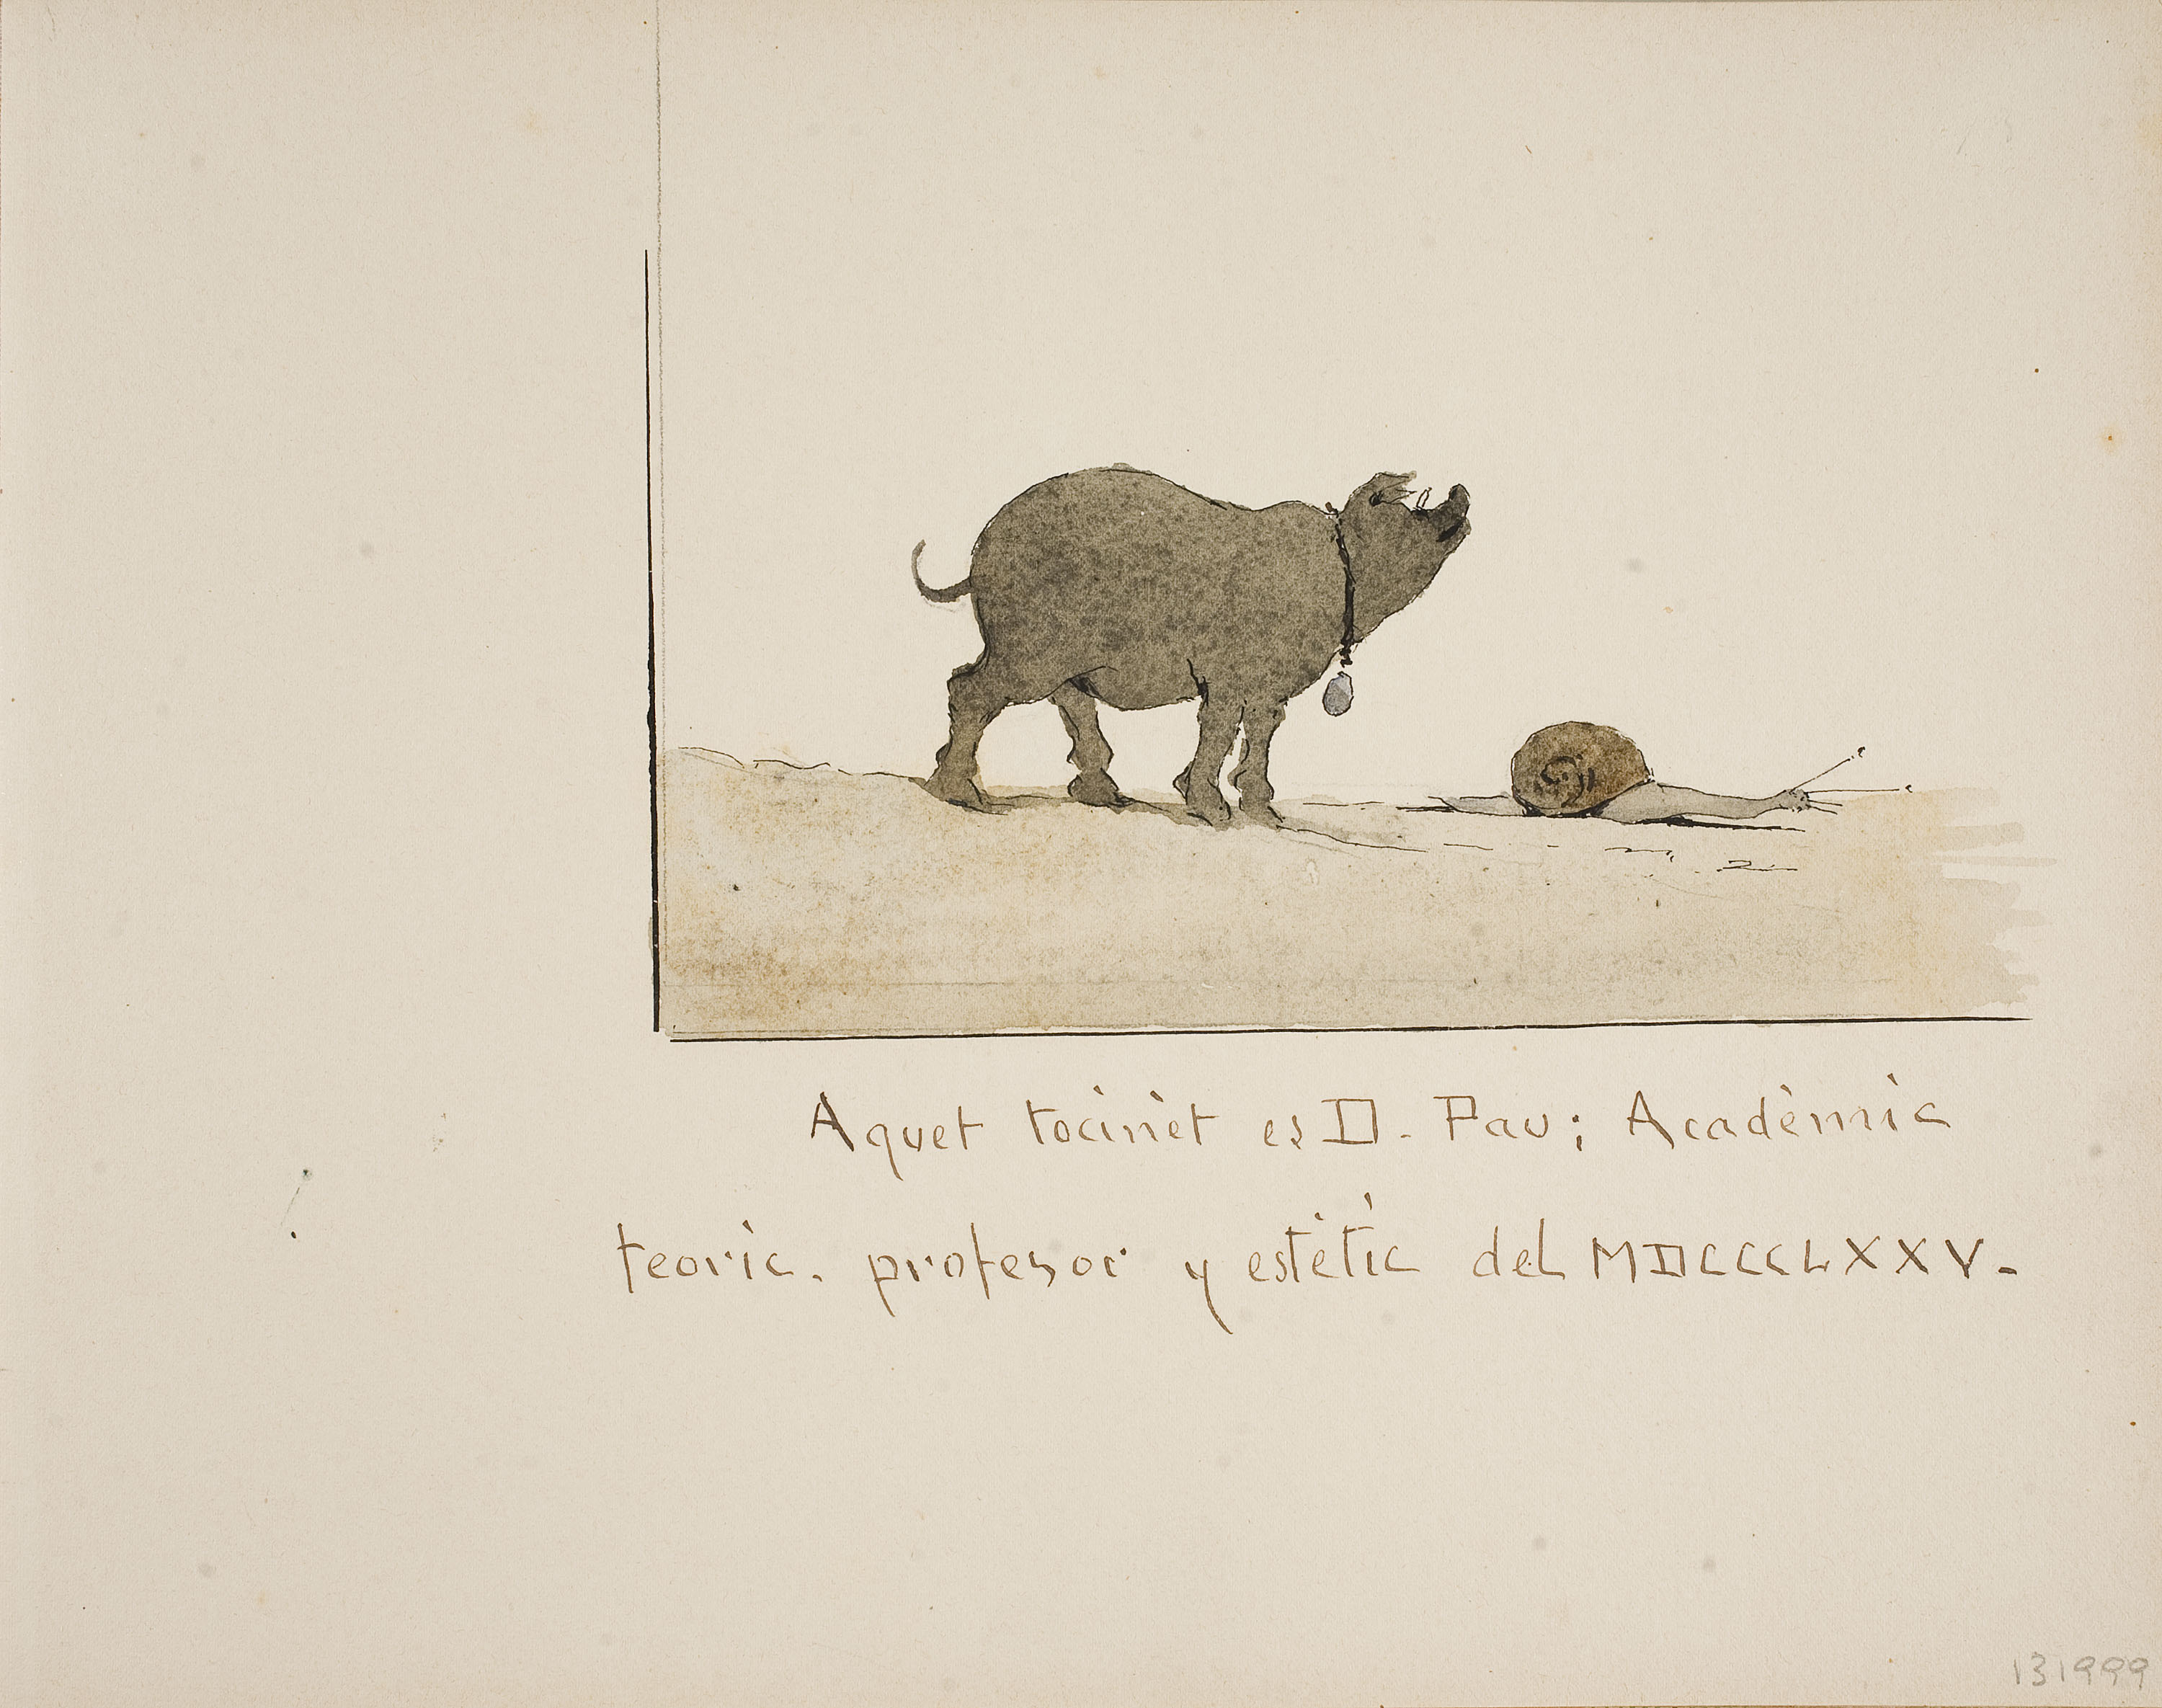 Aquet tocinet es D. Pau; Acadèmic
teoric. profesor y estètic del MDCCCLXXV.
131999